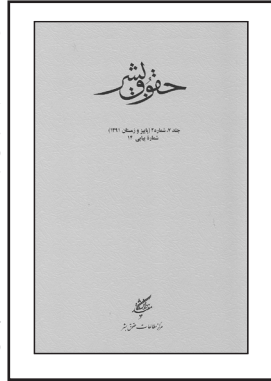 حقوق بشر
جلد ۷، شماره ۲ (پاییز و زمستان ۱۳۹۱)
شمارهٔ پیاپی ۱۴
مرکز مطالعات حقوق بشر